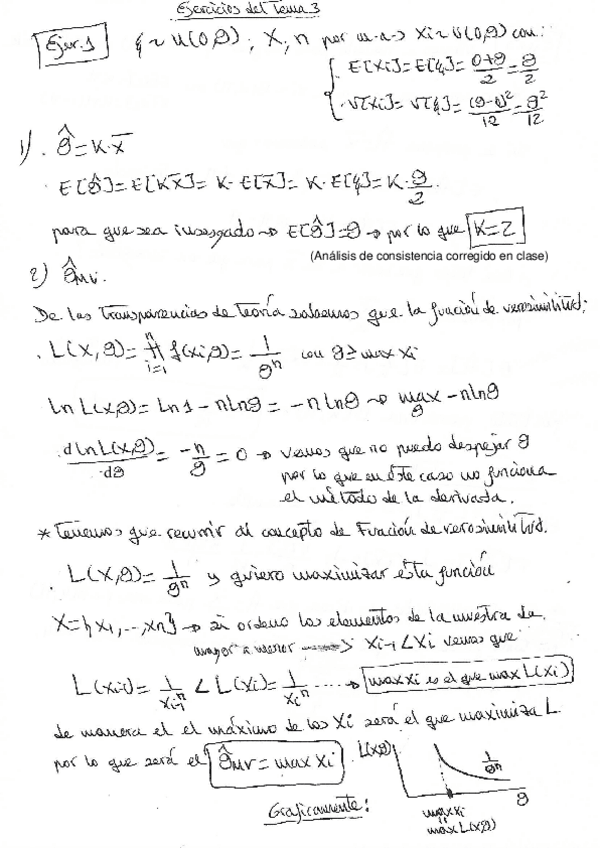 Ejercicios del Tema 3
Ejer. 1 ξ ~ U(0,θ) ; X, n por m.a.s Xi ~ U(0,θ) con:
E[Xi] = E[ξ] = (0+θ)/2 = θ/2
V[Xi] = V[ξ] = (θ-0)²/12 = θ²/12
1). θ̂ = K·x̄
· E[θ̂] = E[Kx̄] = K·E[x̄] = K·E[ξ] = K·θ/2
para que sea insesgado → E[θ̂] = θ → por lo que K=2
(Análisis de consistencia corregido en clase)
2) θ̂MV.
De las transparencias de teoría sabemos que la función de verosimilitud:
· L(X,θ) = ∏ i=1 n f(xi,θ) = 1/θⁿ con θ ≥ max xi
ln L(X,θ) = ln 1 - n ln θ = -n ln θ → max θ -n ln θ
d ln L(X,θ)/dθ = -n/θ = 0 → vemos que no puedo despejar θ
por lo que en éste caso no funciona
el método de la derivada.
* Tenemos que recurrir al concepto de Función de verosimilitud.
· L(X,θ) = 1/θⁿ y quiero maximizar esta función
X = {x1, ..., xn} → si ordeno los elementos de la muestra de
mayor a menor → xi-1 < xi vemos que
L(xi-1) = 1/xi-1ⁿ < L(xi) = 1/xiⁿ .... → max xi es el que max L(xi)
de manera el el máximo de los xi será el que maximiza L
por lo que será el θ̂MV = max xi
L(x,θ)
1/θⁿ
θ
Graficamente:
max xi
max L(x,θ)